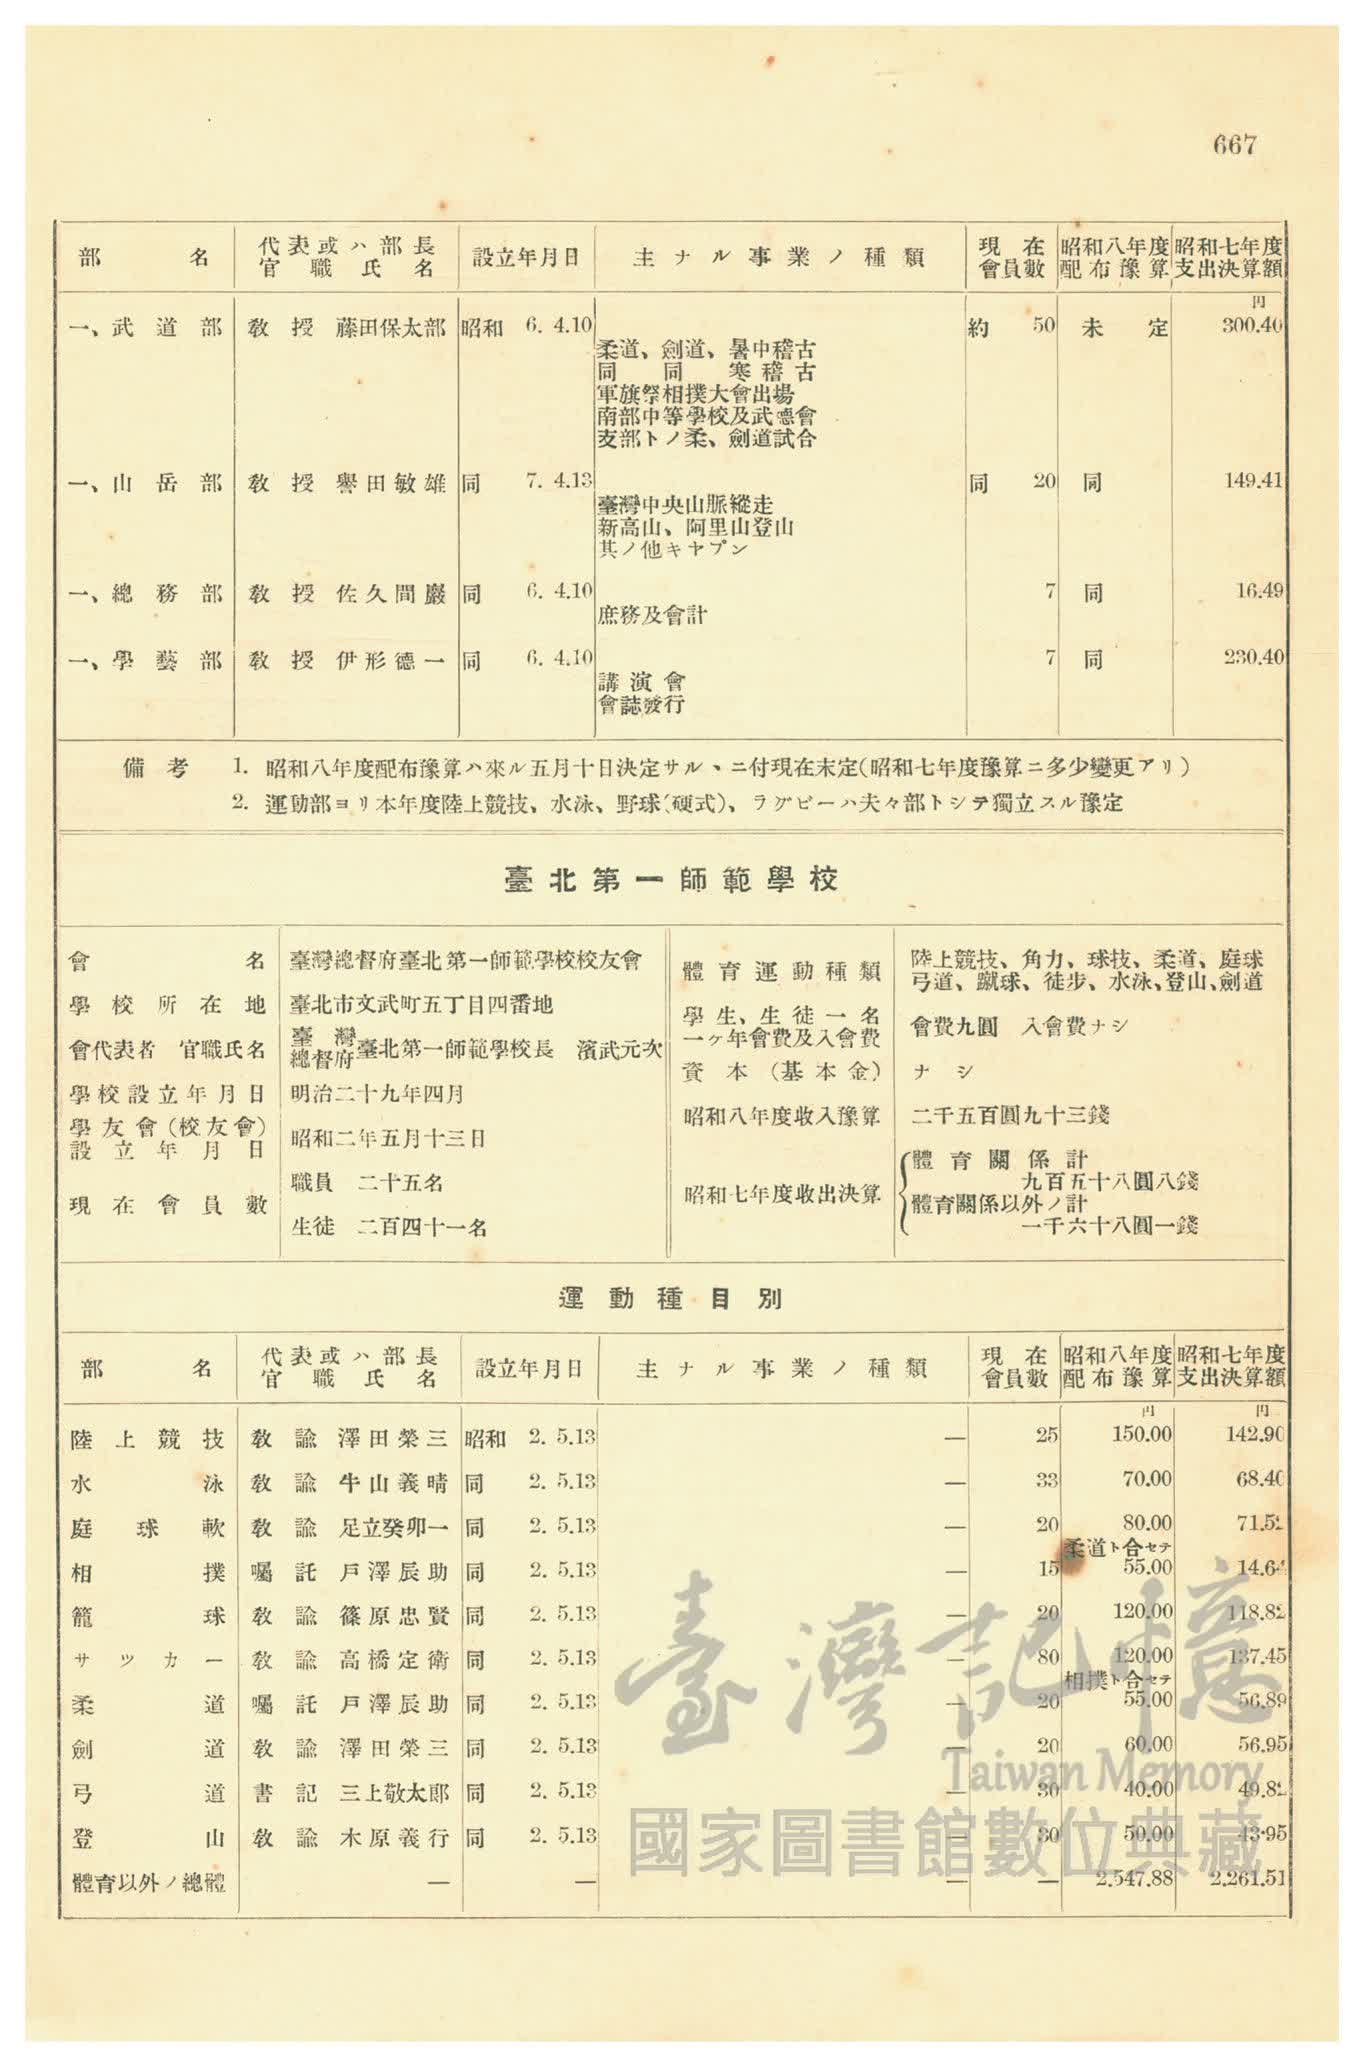 667
部名 代表或ハ部長官職氏名 設立年月日 主ナル事業ノ種類 現在會員數 昭和八年度配布豫算 昭和七年度支出決算額
円
一、武道部 教授 藤田保太部 昭和 6. 4.10 約 50 未定 300.40
柔道、劍道、暑中稽古
同 同 寒稽古
軍旗祭相撲大會出場
南部中等學校及武德會
支部トノ柔、劍道試合
一、山岳部 教授 譽田敏雄 同 7. 4.13 同 20 同 149.41
臺灣中央山脈縱走
新高山、阿里山登山
其ノ他キヤプン
一、總務部 教授 佐久間巖 同 6. 4.10 7 同 16.49
庶務及會計
一、學藝部 教授 伊形德一 同 6. 4.10 7 同 230.40
講演會
會誌發行
備考 1. 昭和八年度配布豫算ハ來ル五月十日決定サルヽニ付現在末定(昭和七年度豫算ニ多少變更アリ)
2. 運動部ヨリ本年度陸上競技、水泳、野球(硬式)、ラグビーハ夫々部トシテ獨立スル豫定
臺北第一師範學校
會名 臺灣總督府臺北第一師範學校校友會
學校所在地 臺北市文武町五丁目四番地
會代表者 官職氏名 臺灣總督府臺北第一師範學校長 濱武元次
學校設立年月日 明治二十九年四月
學友會(校友會)設立年月日 昭和二年五月十三日
現在會員數 職員 二十五名
生徒 二百四十一名
體育運動種類 陸上競技、角力、球技、柔道、庭球
弓道、蹴球、徒步、水泳、登山、劍道
學生、生徒一名一ヶ年會費及入會費 會費九圓 入會費ナシ
資本(基本金) ナシ
昭和八年度收入豫算 二千五百圓九十三錢
昭和七年度收出決算 體育關係計
九百五十八圓八錢
體育關係以外ノ計
一千六十八圓一錢
運動種目別
部名 代表或ハ部長官職氏名 設立年月日 主ナル事業ノ種類 現在會員數 昭和八年度配布豫算 昭和七年度支出決算額
円 円
陸上競技 教諭 澤田榮三 昭和 2. 5.13 — 25 150.00 142.90
水泳 教諭 牛山義晴 同 2. 5.13 — 33 70.00 68.40
庭球軟 教諭 足立癸卯一 同 2. 5.13 — 20 80.00 71.52
柔道ト合セテ
相撲 囑託 戸澤辰助 同 2. 5.13 — 15 55.00 14.64
籠球 教諭 篠原忠賢 同 2. 5.13 — 20 120.00 118.82
サツカー 教諭 高橋定衛 同 2. 5.13 — 80 120.00 137.45
相撲ト合セテ
柔道 囑託 戸澤辰助 同 2. 5.13 — 20 55.00 56.89
劍道 教諭 澤田榮三 同 2. 5.13 — 20 60.00 56.95
弓道 書記 三上敬太郎 同 2. 5.13 — 30 40.00 49.82
登山 教諭 木原義行 同 2. 5.13 — 30 50.00 43.95
體育以外ノ總體 — — — — 2.547.88 2.261.51
臺灣記憶
Taiwan Memory
國家圖書館數位典藏